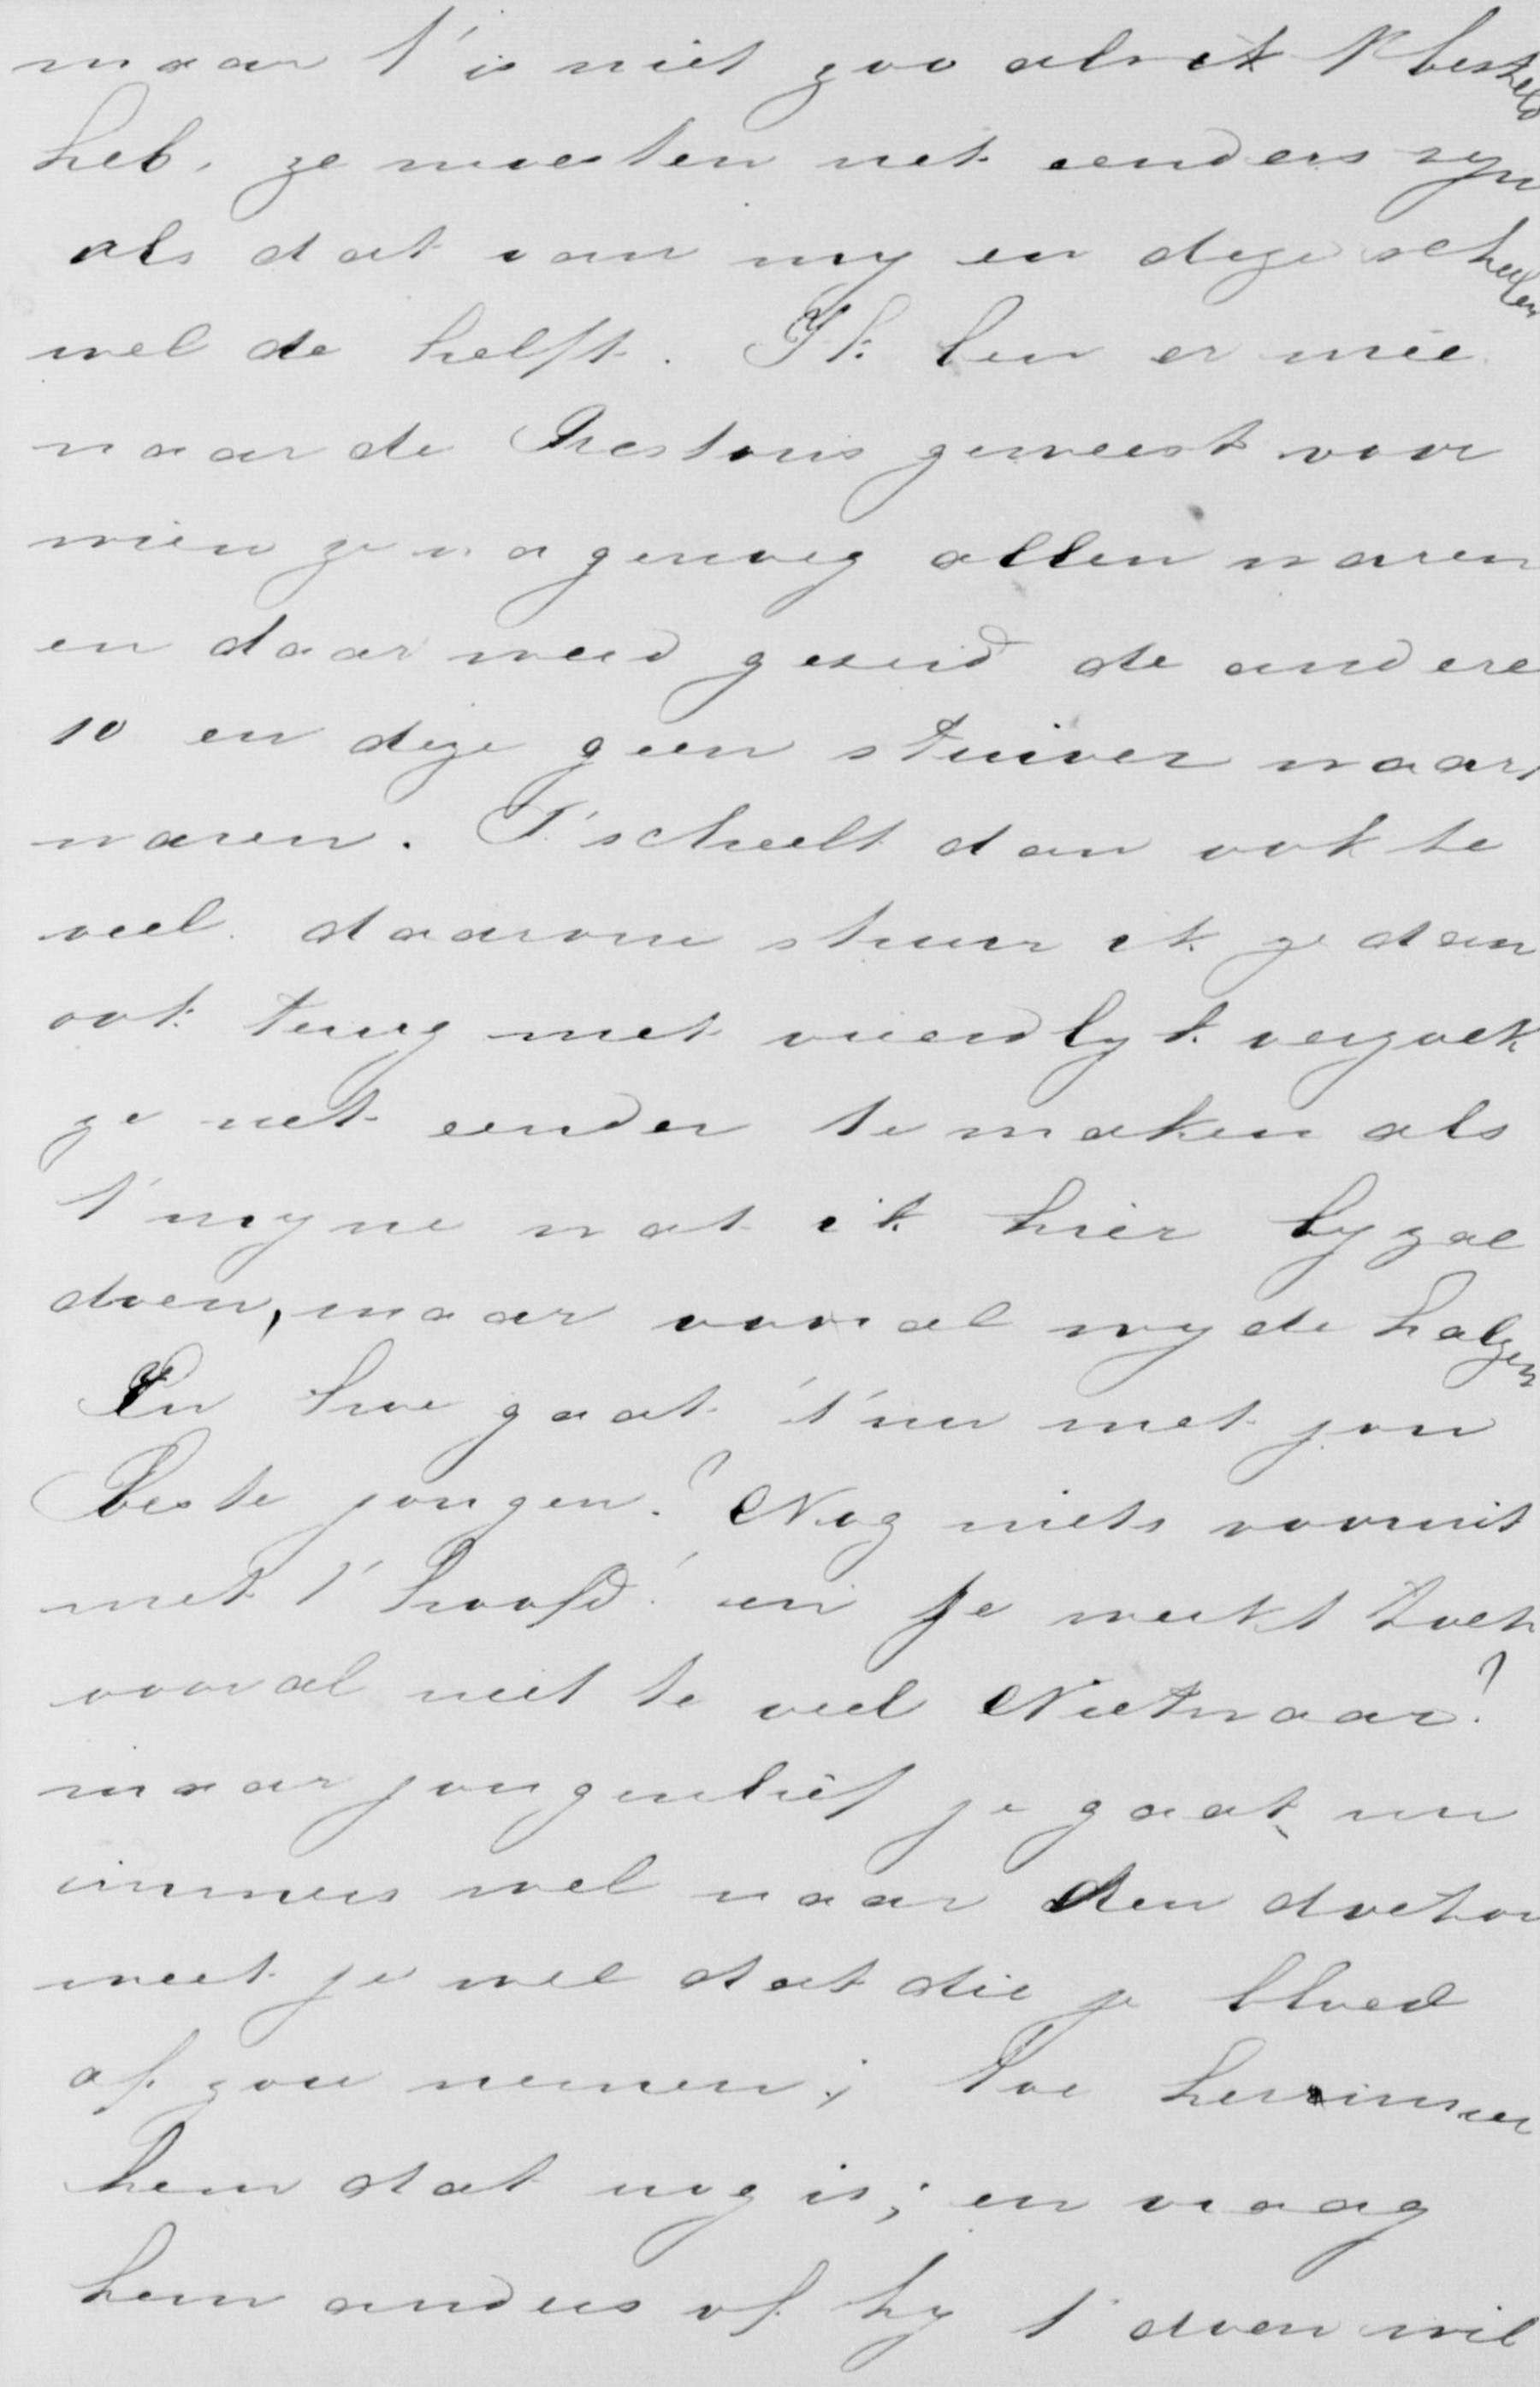 maar t' is niet zoo als ik t' besteld
heb. ze moesten net eenders zyn
als dat van my en deze scheelen
wel de helft. Ik ben er mee
naar de Prestons geweest voor
wien ze na genoeg allen waren
en daar werd gezeid de andere
10 en deze geen stuiver waard
waren. T' scheelt dan ook te
veel. daarom stuur ik ze dan
ook terug met vriendlyk verzoek
ze net eender te maken als
t' myne wat ik hier by zal
doen, maar vooral wyde halzen
En hoe gaat t' nu met jou
Beste jongen? Nog niets vooruit
met t' hoofd! en je werkt toch
vooral niet te veel Nietwaar?
maar jongenlief je gaat nu
immers wel naar den doctor
weet je wel dat die je bloed
af zou nemen; toe herrinner
hem dat nog is; en vraag
hem anders of hy t' doen wil